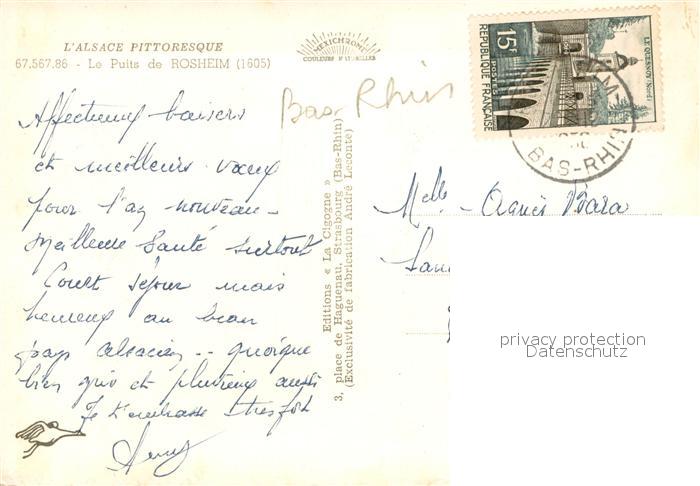 L'ALSACE PITTORESQUE
67.567.86 - Le Puits de ROSHEIM (1605)
MEXICHROME
COULEURS NATURELLES
Bas Rhin
15F
POSTES
REPUBLIQUE FRANÇAISE
LE QUESNOY (Nord)
BAS-RHIN
Affectueux baisers
et meilleurs vœux
pour l'an nouveau -
Meilleure Santé surtout
Court séjour mais
heureux au beau
pays alsacien .. quoique
bien gris et pluvieux aussi
Je t'embrasse très fort
Editions « La Cigogne »
3, place de Haguenau, Strasbourg (Bas-Rhin)
(Exclusivité de fabrication André Leconte)
Melle Agnès Bara
privacy protection
Datenschutz